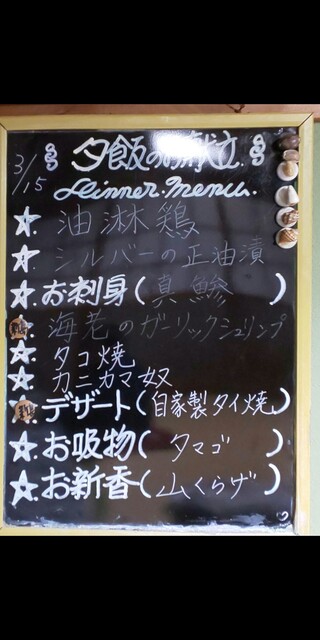 夕飯の献立
3/15
Dinner.menu.
☆ 油淋鶏
☆ シルバーの正油漬
☆ お刺身(真鯵)
海老のガーリックシュリンプ
☆ タコ焼
☆ カニカマ奴
デザート(自家製タイ焼)
☆ お吸物(タマゴ)
☆ お新香(山くらげ)